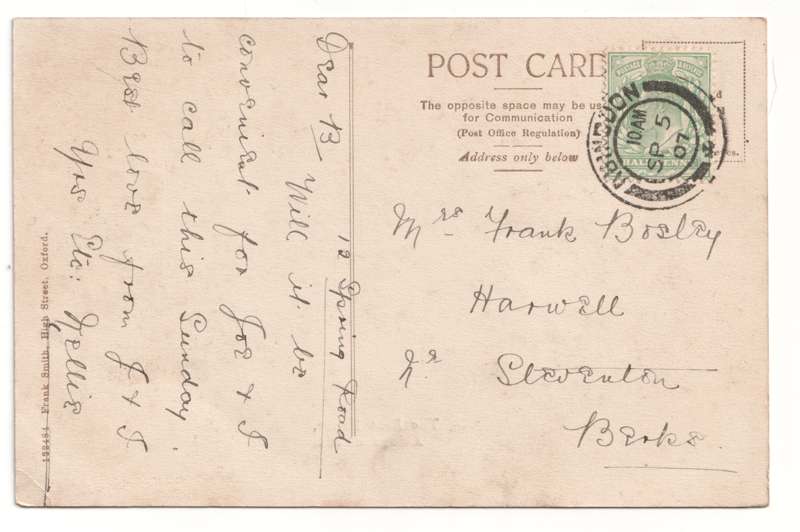 POST CARD
The opposite space may be use
for Communication
(Post Office Regulation)
Address only below
POSTAGE
HALFPENNY
ABINGDON
10 AM
SP 5
07
Mrs Frank Bosley
Harwell
Nr Steventon
Berks.
12 Spring Road
Dear B Will it be
convenient for Joe & I
to call this Sunday
Best love from J & I
Yrs Etc: Nellie
158484 Frank Smith, High Street, Oxford.